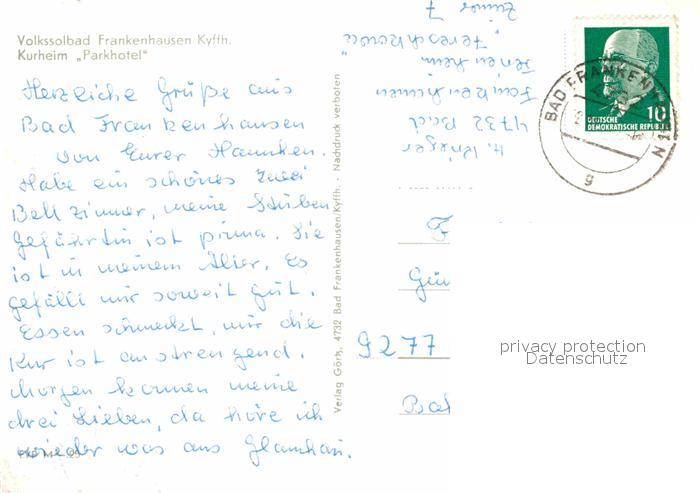 Volkssolbad Frankenhausen Kyffh.
Kurheim „Parkhotel"
Herzliche Grüße aus
Bad Frankenhausen
von Eurer Hannchen.
Habe ein schönes zwei
Bett zimmer, meine Stuben
gefährtin ist prima. Sie
ist in meinem Alter. Es
gefällt mir soweit gut.
Essen schmeckt, nur die
Kur ist anstrengend.
Morgen kommen meine
drei Lieben, da höre ich
wieder was aus Glauchau.
Verlag Görk, 4732 Bad Frankenhausen/Kyffh. · Nachdruck verboten
H. Krüger
4732 Bad
Frankenhausen
Ferienheim
„Tereschkowa"
Zimmer 7
BAD FRANKENH
g
10
DEUTSCHE
DEMOKRATISCHE REPUBLIK
F
9277
privacy protection
Datenschutz